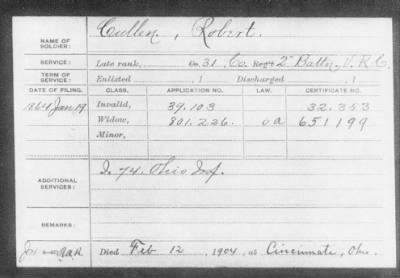 NAME OF SOLDIER: Cullen, Robert.
SERVICE: Late rank, Co. 31, Co. Reg't 2" Battn, V. R. C.
TERM OF SERVICE: Enlisted , 1 Discharged , 1
DATE OF FILING. CLASS. APPLICATION NO. LAW. CERTIFICATE NO.
1864 Jan 19 Invalid, 39.103 32.353
Widow, 801.226. 651199
Minor,
ADDITIONAL SERVICES: I. 74. Ohio Inf.
REMARKS:
Died Feb 12, 1904, at Cincinnati, Ohio.